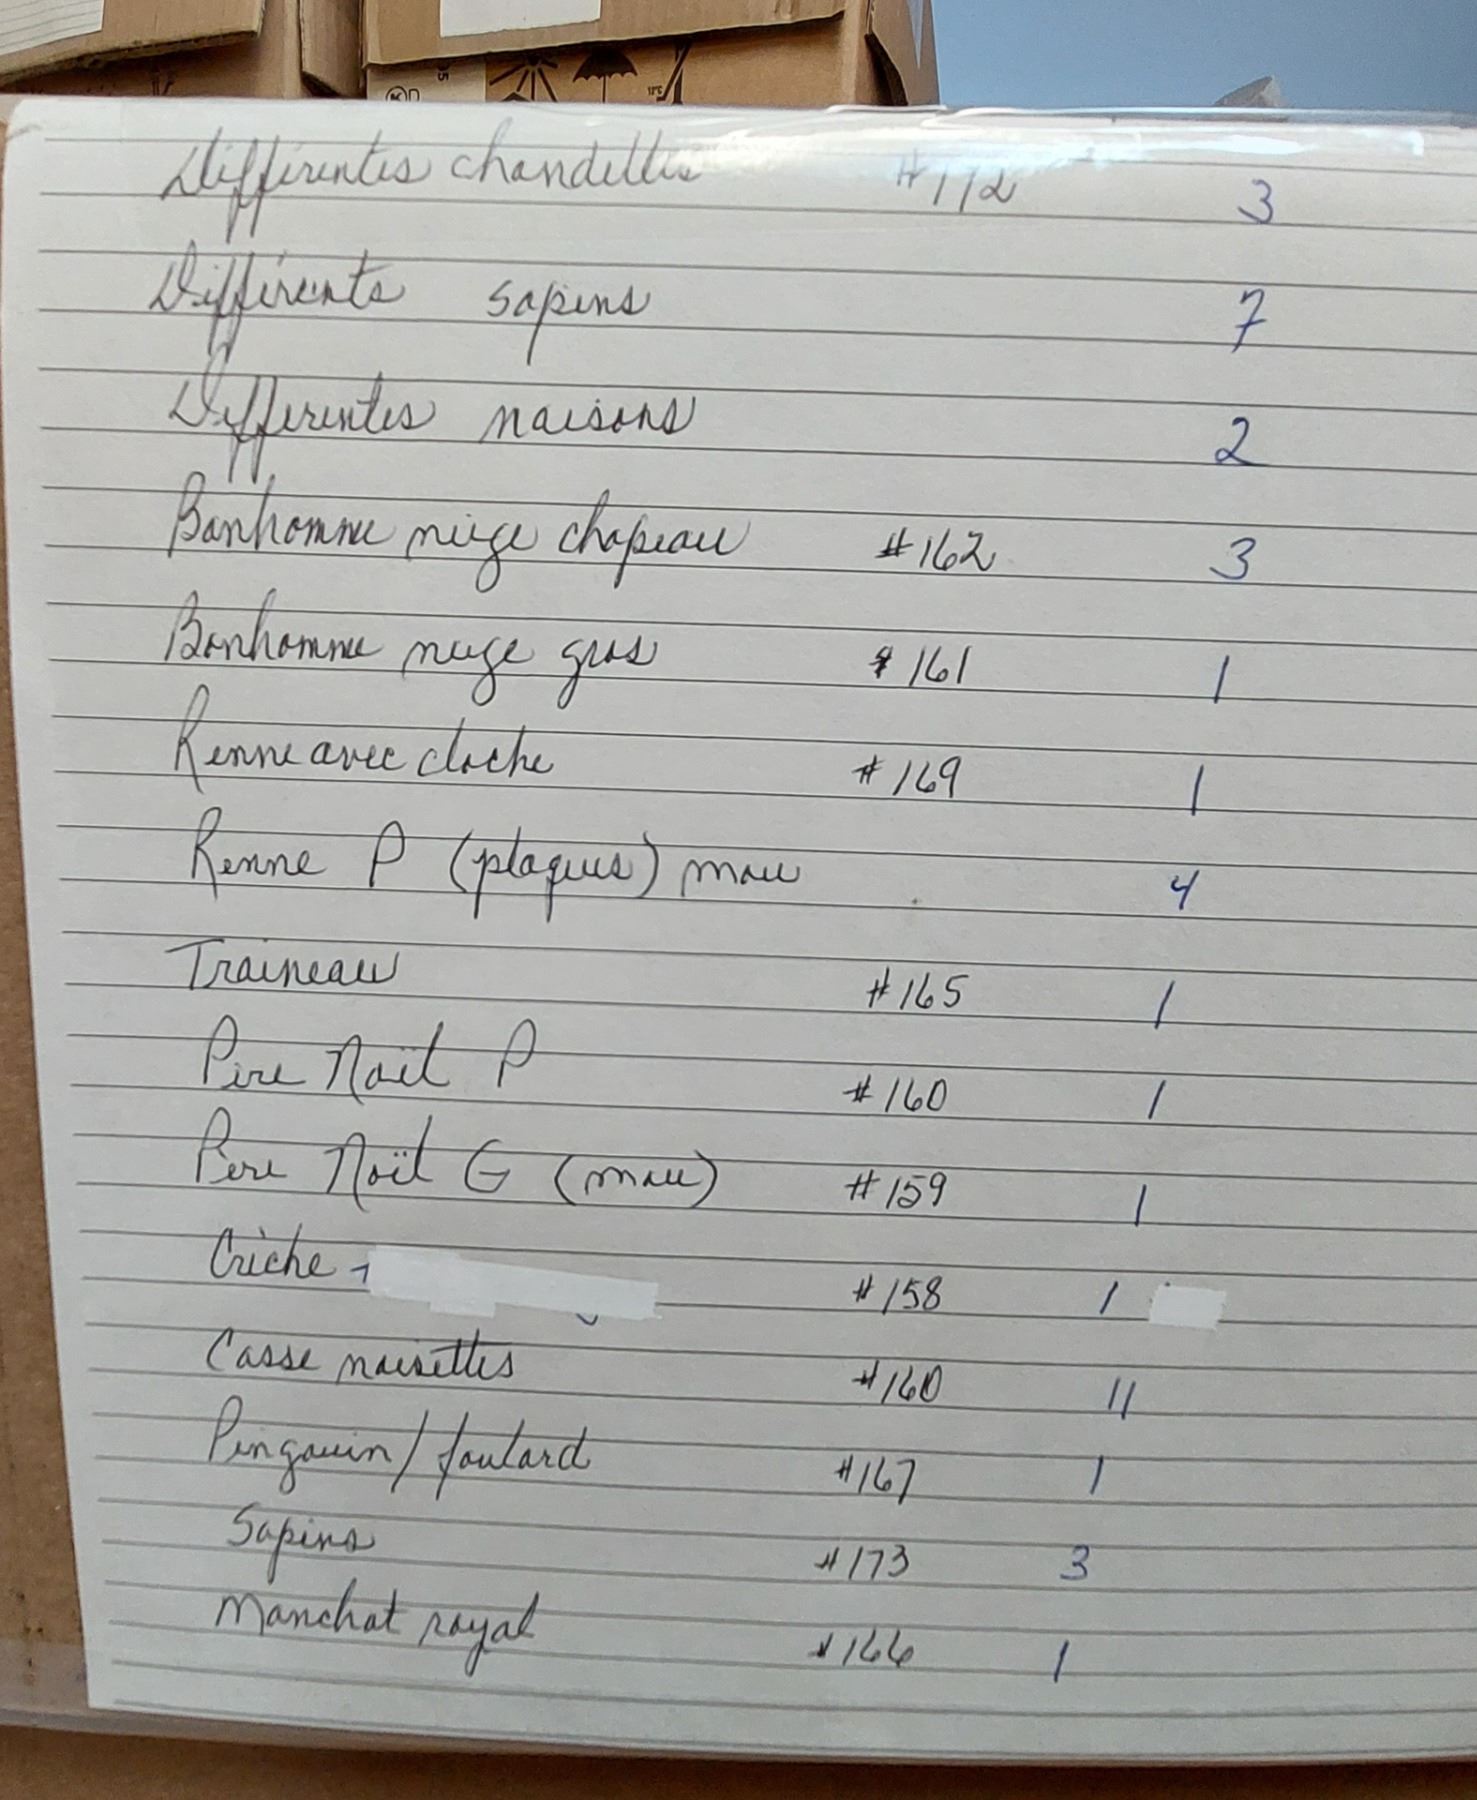 Différentes chandelles #172 3
Différents sapins 7
Différentes maisons 2
Bonhomme neige chapeau #162 3
Bonhomme neige gros #161 1
Renne avec cloche #169 1
Renne P (plaques) mou 4
Traineau #165 1
Père Noël P #160 1
Père Noël G (mou) #159 1
Crèche #158 1
Casse noisettes #160 11
Pingouin / foulard #167 1
Sapins #173 3
Manchot royal #166 1